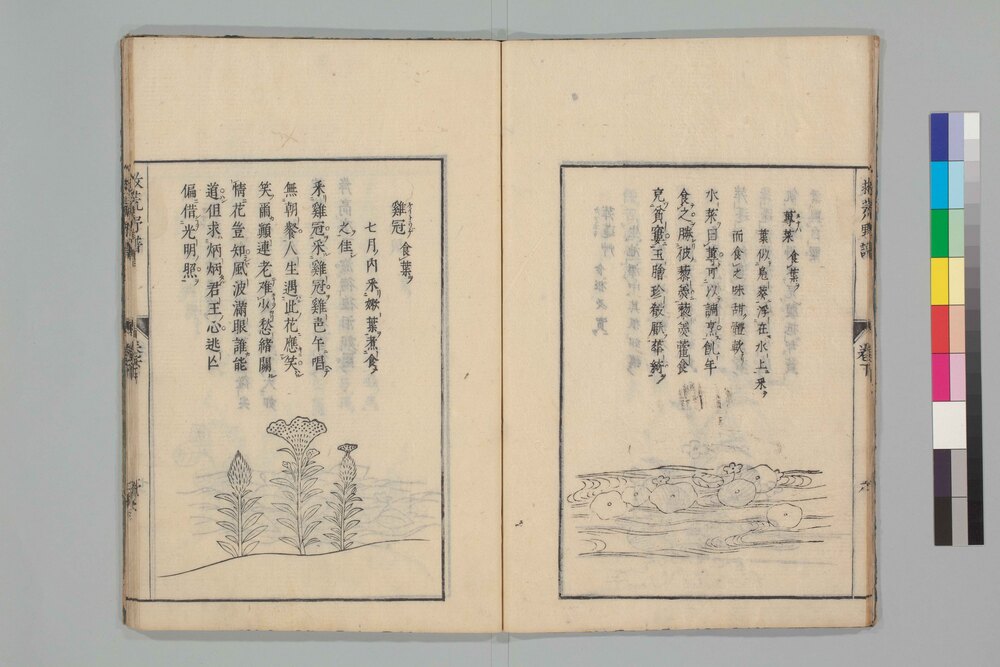 蓴菜 食葉
葉似鳬葵浮在水上采
而食之味甜體軟
水菜曰蓴可以調烹飢年
食之勝彼藜羹藜羹藿食
玉膾珍殽厭華綺
卷下
雞冠 食葉
七月内采嫩葉煮食
之佳
采雞冠采雞冠雞邑午唱
無朝餐人生遇此花應笑
笑爾顛連老雅少愁緒闊
情花豈知風波滿眼誰能
道但求炳炳君王心逃亾
偏借光明照
救荒野譜